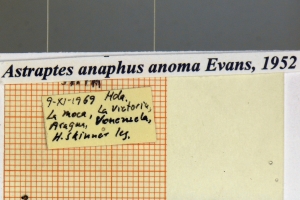 Astraptes anaphus anoma Evans, 1952
9-XI-1969 Hda.
La moca, La Victoria,
Aragua, Venezuela,
H. Skinner leg.